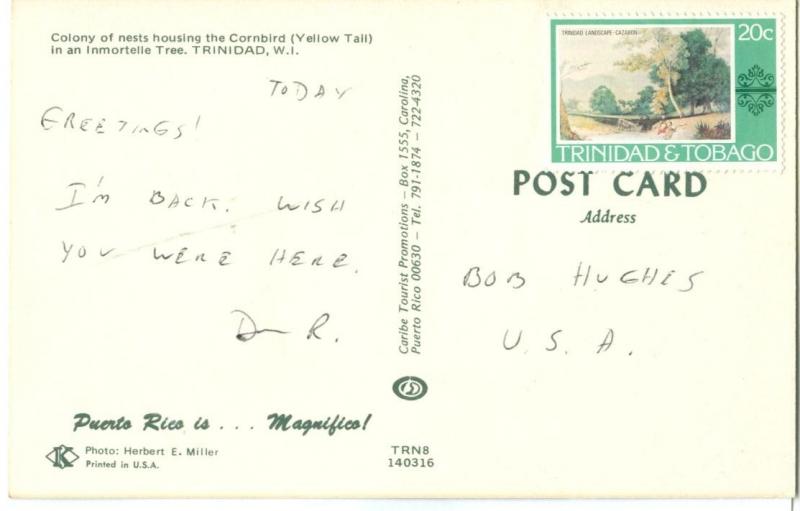 Colony of nests housing the Cornbird (Yellow Tail)
in an Inmortelle Tree. TRINIDAD, W.I.
TODAY
GREETINGS!
I'M BACK. WISH
YOU WERE HERE.
D R.
Puerto Rico is . . . Magnifico!
K
Photo: Herbert E. Miller
Printed in U.S.A.
Caribe Tourist Promotions – Box 1555, Carolina,
Puerto Rico 00630 – Tel. 791-1874 – 722-4320
TRN8
140316
TRINIDAD LANDSCAPE-CAZABON
20c
TRINIDAD & TOBAGO
POST CARD
Address
BOB HUGHES
U.S.A.